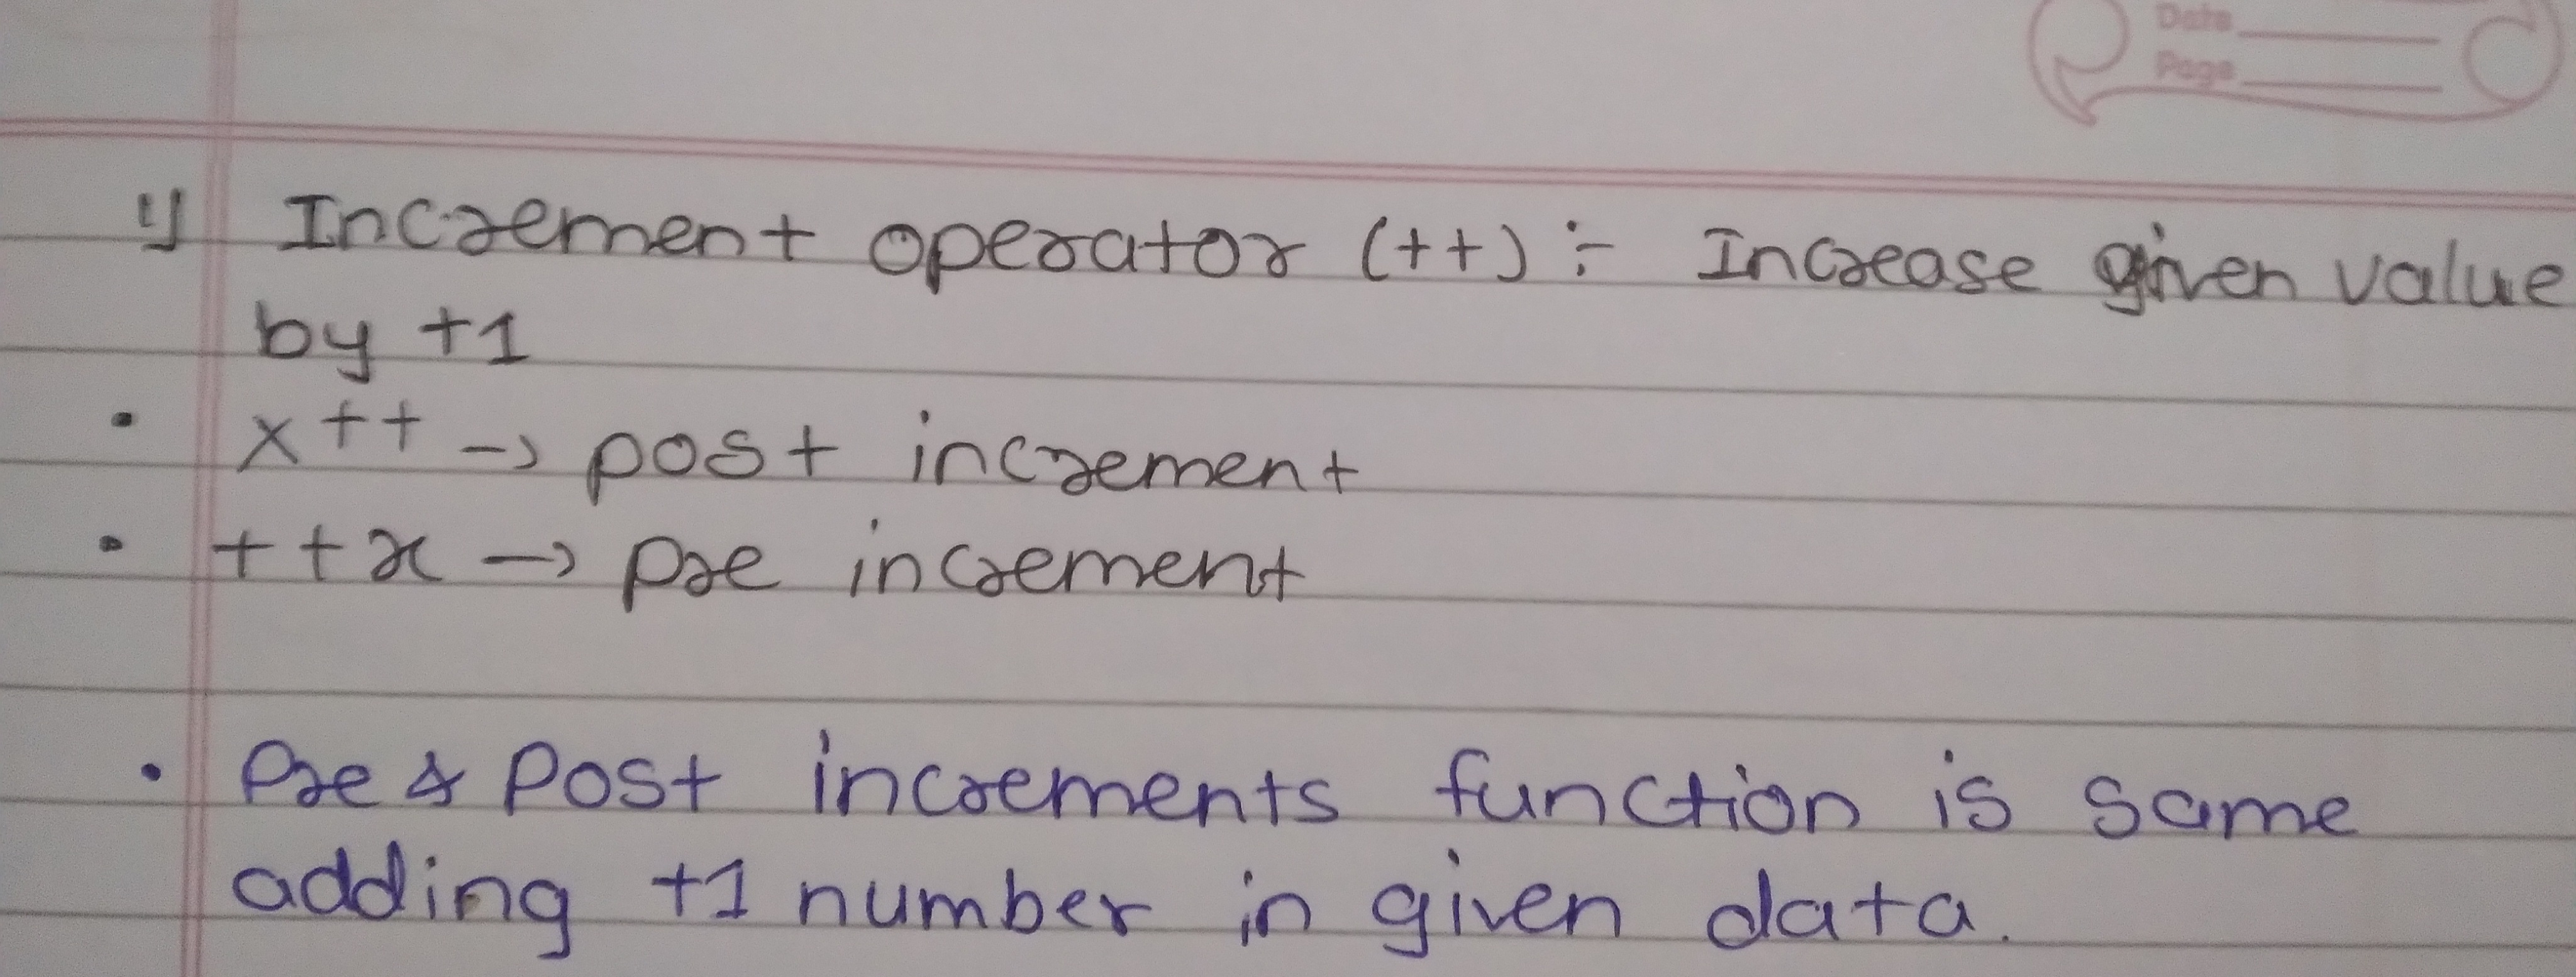 Date
Page
1) Increment operator (++) :- Increase given value
by +1
• x++ -> post increment
• ++x -> pre increment
• Pre & Post increments function is same
adding +1 number in given data.